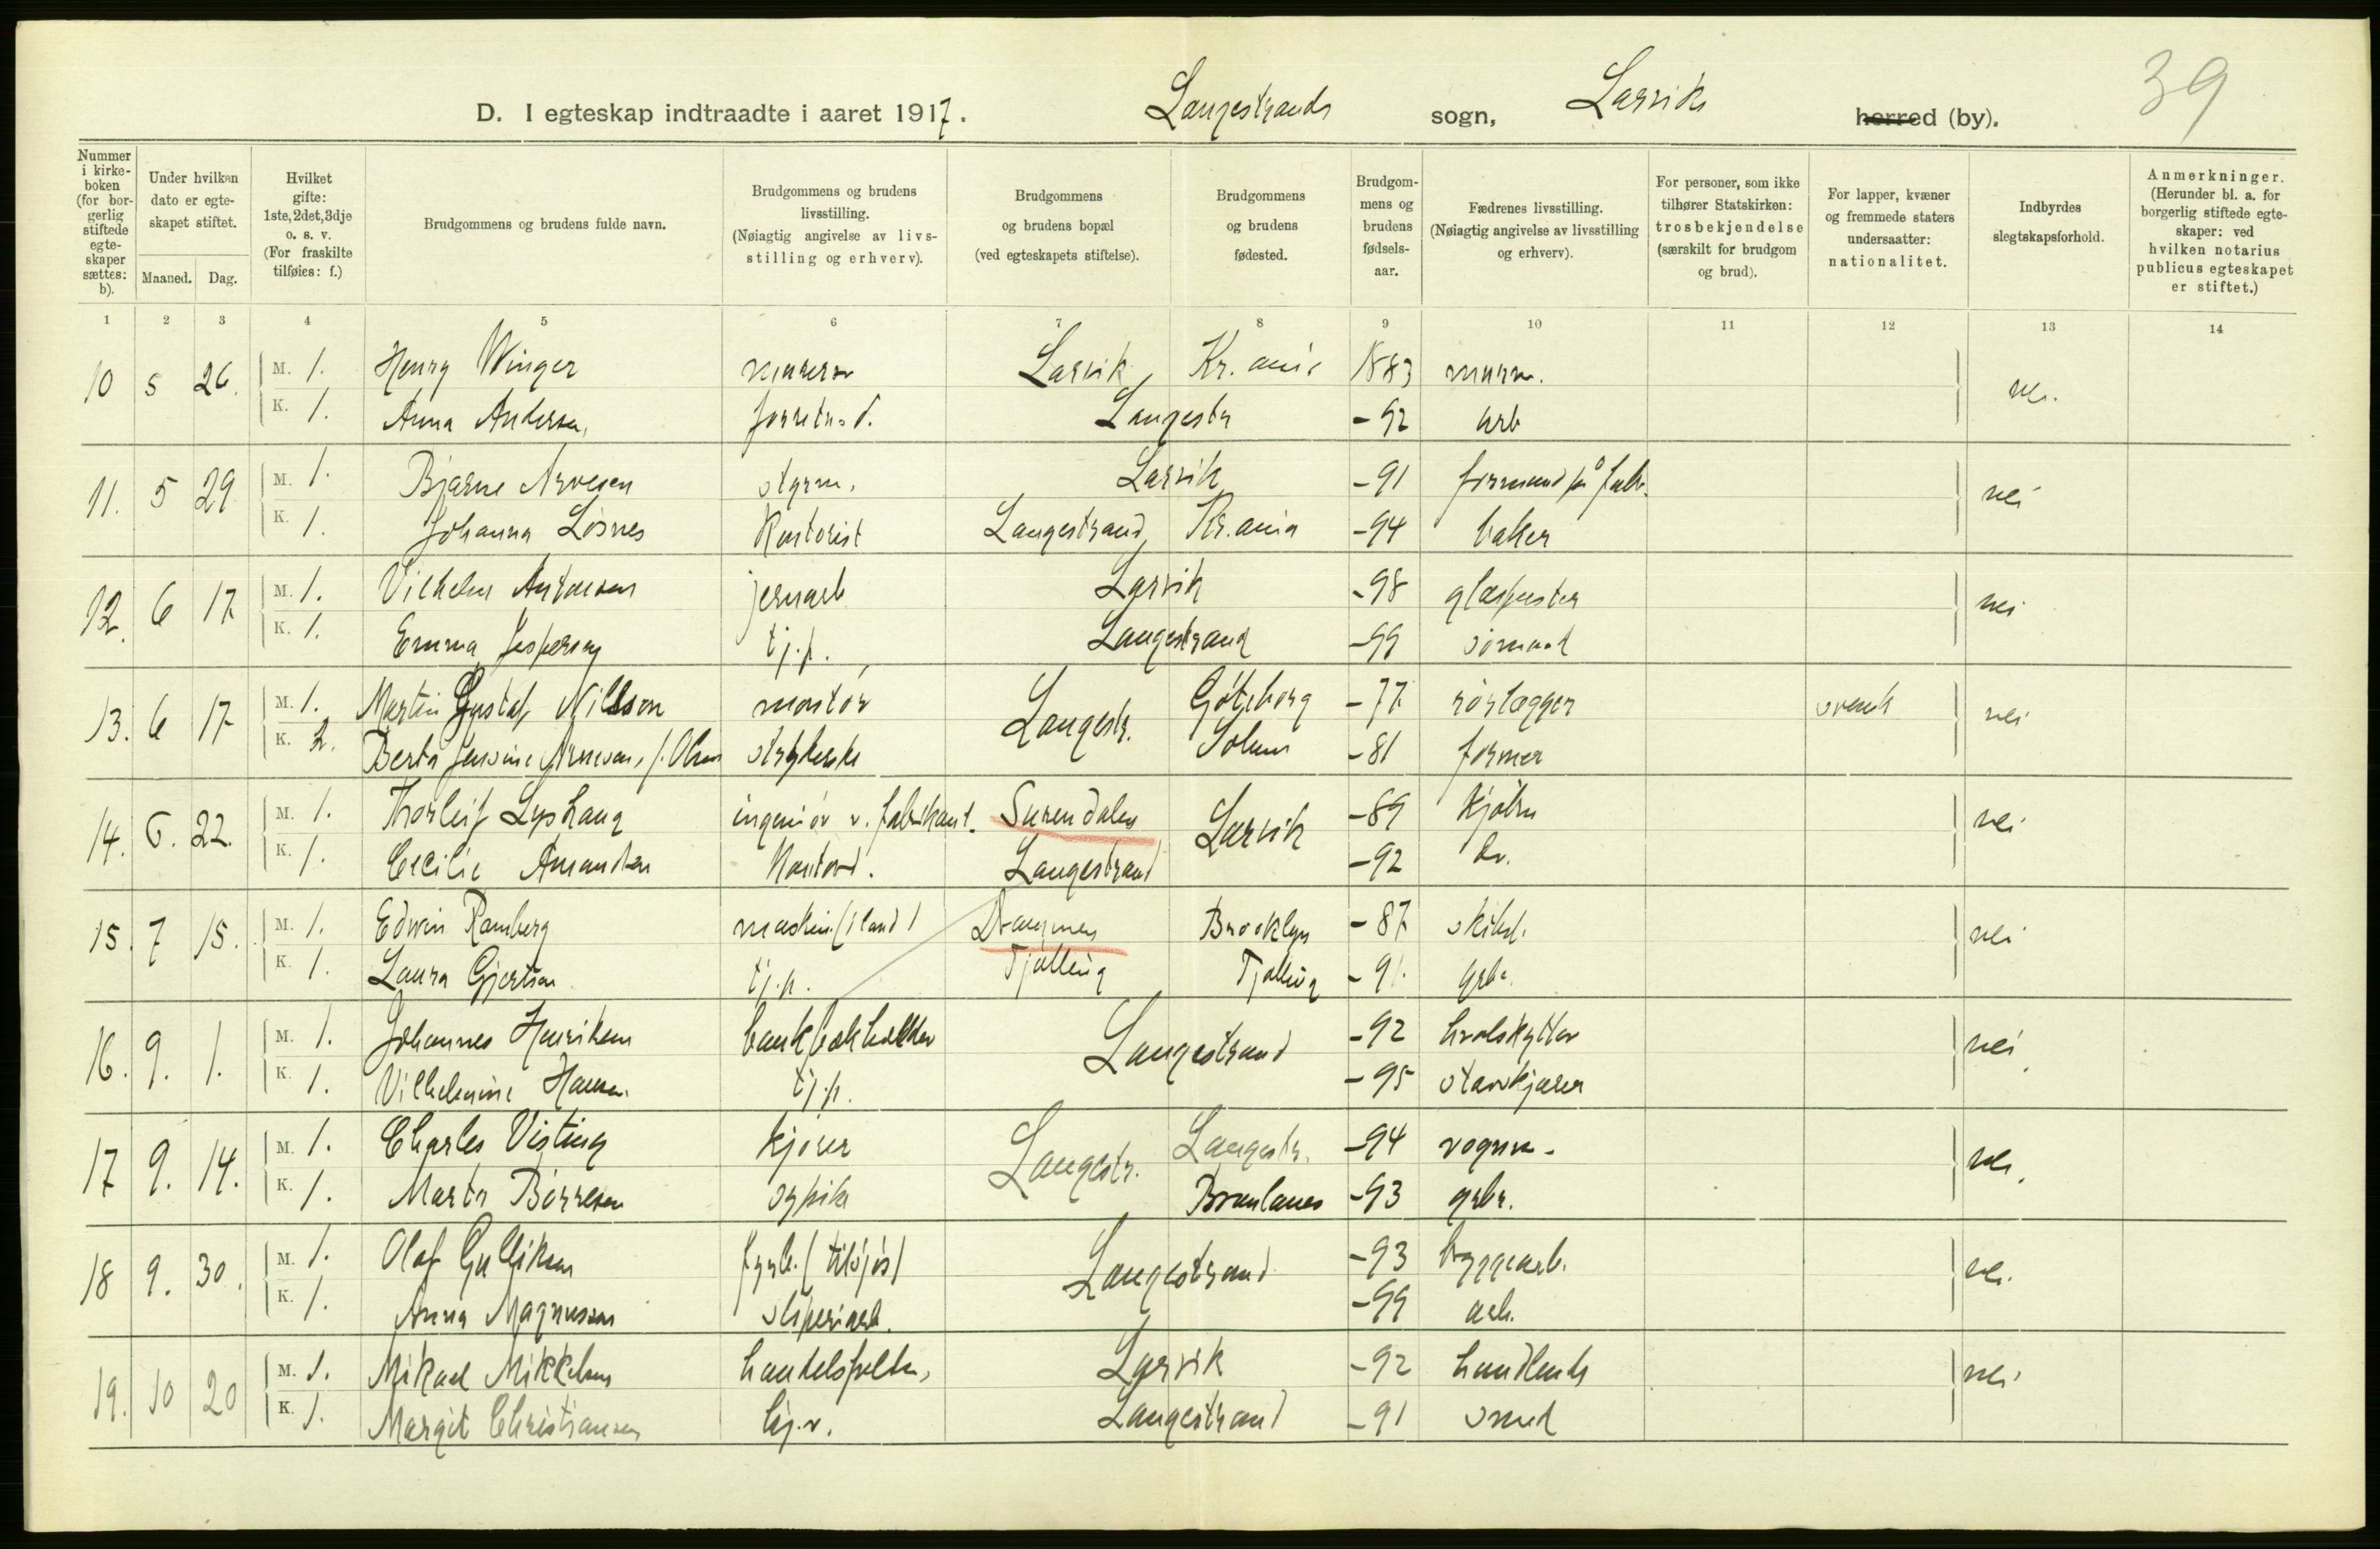 39
D. I egteskap indtraadte i aaret 1917. Langestrands sogn, Larviks herred (by).
Nummer i kirkeboken (for borgerlig stiftede egteskaper sættes: b).
Under hvilken dato er egteskapet stiftet.
Maaned. Dag.
Hvilket gifte: 1ste, 2det, 3dje o. s. v. (For fraskilte tilføies: f.)
Brudgommens og brudens fulde navn.
Brudgommens og brudens livsstilling. (Nøiagtig angivelse av livsstilling og erhverv).
Brudgommens og brudens bopæl (ved egteskapets stiftelse).
Brudgommens og brudens fødested.
Brudgommens og brudens fødselsaar.
Fædrenes livsstilling. (Nøiagtig angivelse av livsstilling og erhverv).
For personer, som ikke tilhører Statskirken: trosbekjendelse (særskilt for brudgom og brud).
For lapper, kvæner og fremmede staters undersaatter: nationalitet.
Indbyrdes slegtskapsforhold.
Anmerkninger. (Herunder bl. a. for borgerlig stiftede egteskaper: ved hvilken notarius publicus egteskapet er stiftet.)
1 2 3 4 5 6 7 8 9 10 11 12 13 14
10 5 26. M. 1. Henry Winger Larvik, Kr.ania 1883 murm.
K. 1. Anna Andersen, Langestr -92 arb
11. 5 29 M. 1. Bjarne Arvesen styrm. Larvik -91 formand på fabr. nei
K. 1. Johanna Løsnes Kontorist Langestrand, Kr.ania -94 baker
12. 6 17 M. 1. Vilhelm Antonsen jernarb Larvik -98 glaspuster nei
K. 1. Emma Jespersen tj.p. Langestrand -99 sømand
13. 6 17 M. 1. Martin Gustaf Nilsson montør Langestr. Göteborg -77 rørlægger svensk nei
K. 2. Berta Arnesen, f. Olsen strykerske Solum -81 former
14. 6. 22. M. 1. Thorleif Lyshaug ingeniør v. fabrikant. Surendalen Larvik -89 Kjøbm nei
K. 1. Cecilie Amundsen Kontord. Langestrand -92
15. 7 15. M. 1. Edwin Ramberg maskin. (iland) Drangnes Brooklyn -87 skibsf. nei
K. 1. Laura Gjertsen tj.p. Tjølling Tjølling -91. grbr.
16. 9. 1. M. 1. Johannes Henriksen bankbokholder Langestrand -92 hvalskytter nei
K. 1. Vilhelmine Hansen tj.p. -95 stavskjærer
17 9. 14. M. 1. Charles Visting kjører Langestr. Langestr. -94 vognm. nei
K. 1. Marta Børresen sypike Brunlanes -93 grbr.
18 9. 30. M. 1. Olaf Gulliksen fyrb. (tilsjøs) Langestrand -93 bryggearb. nei
K. 1. Anna Magnussen sliperiarb. -99 arb.
19. 10 20 M. 1. Mikael Mikkelsen handelsfuldm. Larvik -92 handlende nei
K. 1. Margit Christiansen Langestrand -91 smed